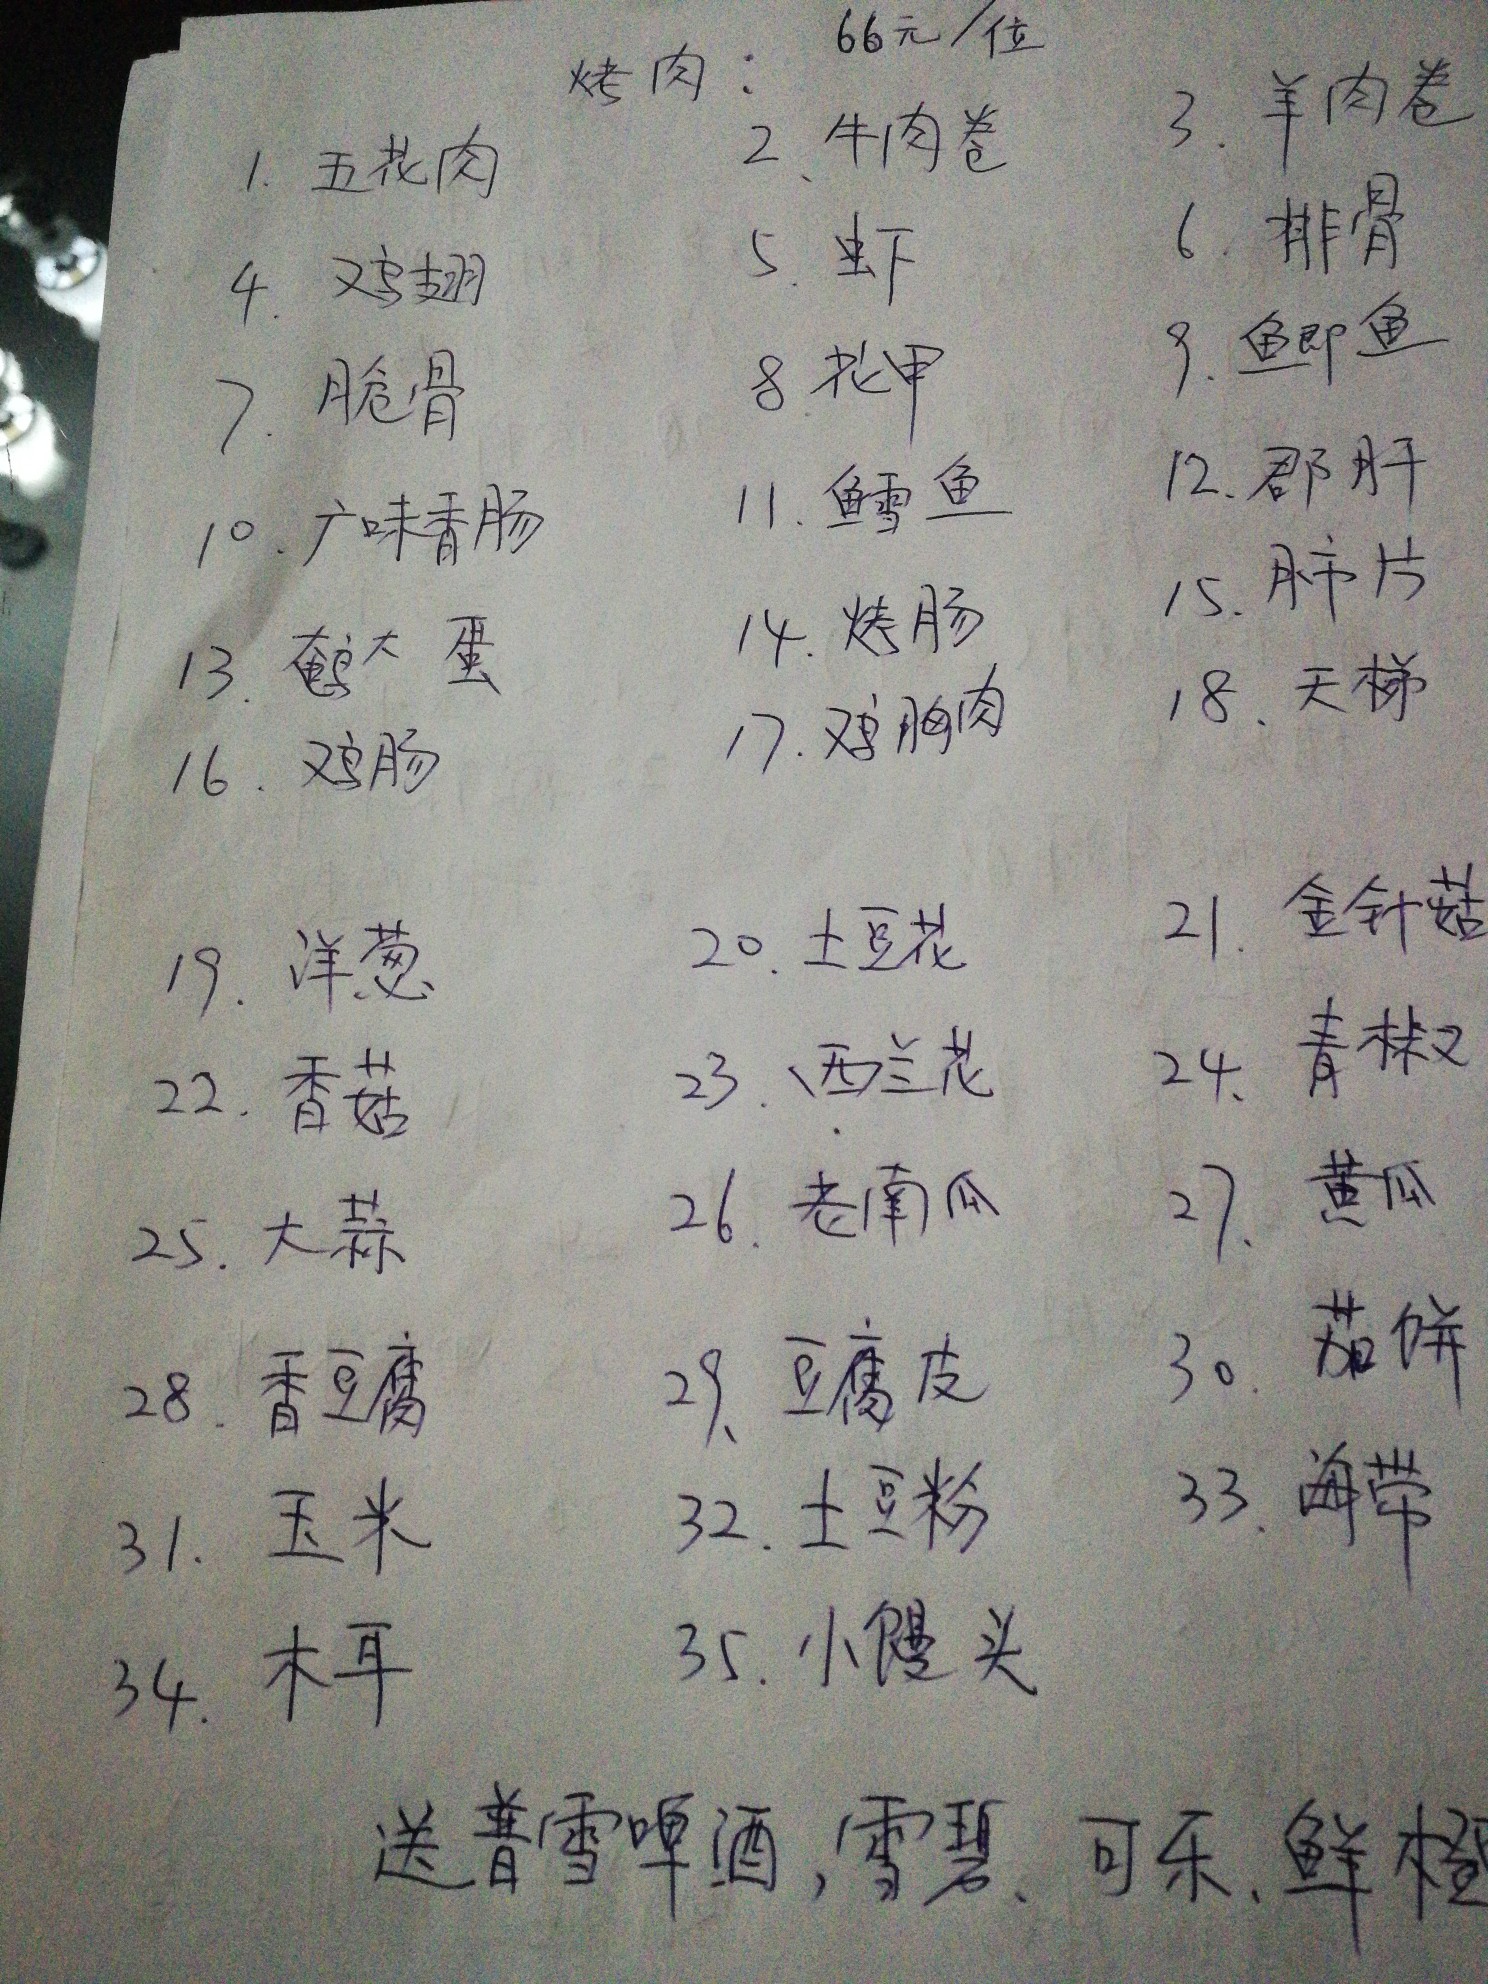 66元/位
烤肉：
1. 五花肉 2、牛肉卷 3. 羊肉卷
4. 鸡翅 5. 虾 6. 排骨
7. 脆骨 8 花甲 9. 鲫鱼
10. 广味香肠 11. 鳕鱼 12. 郡肝
13. 鹌大蛋 14. 烤肠 15. 肺片
16. 鸡肠 17. 鸡胸肉 18、天梯
19. 洋葱 20. 土豆花 21. 金针菇
22. 香菇 23. 西兰花 24、青椒
25. 大蒜 26. 老南瓜 27、黄瓜
28. 香豆腐 29、豆腐皮 30. 茄饼
31. 玉米 32. 土豆粉 33. 海带
34. 木耳 35. 小馒头
送普雪啤酒，雪碧、可乐、鲜橙